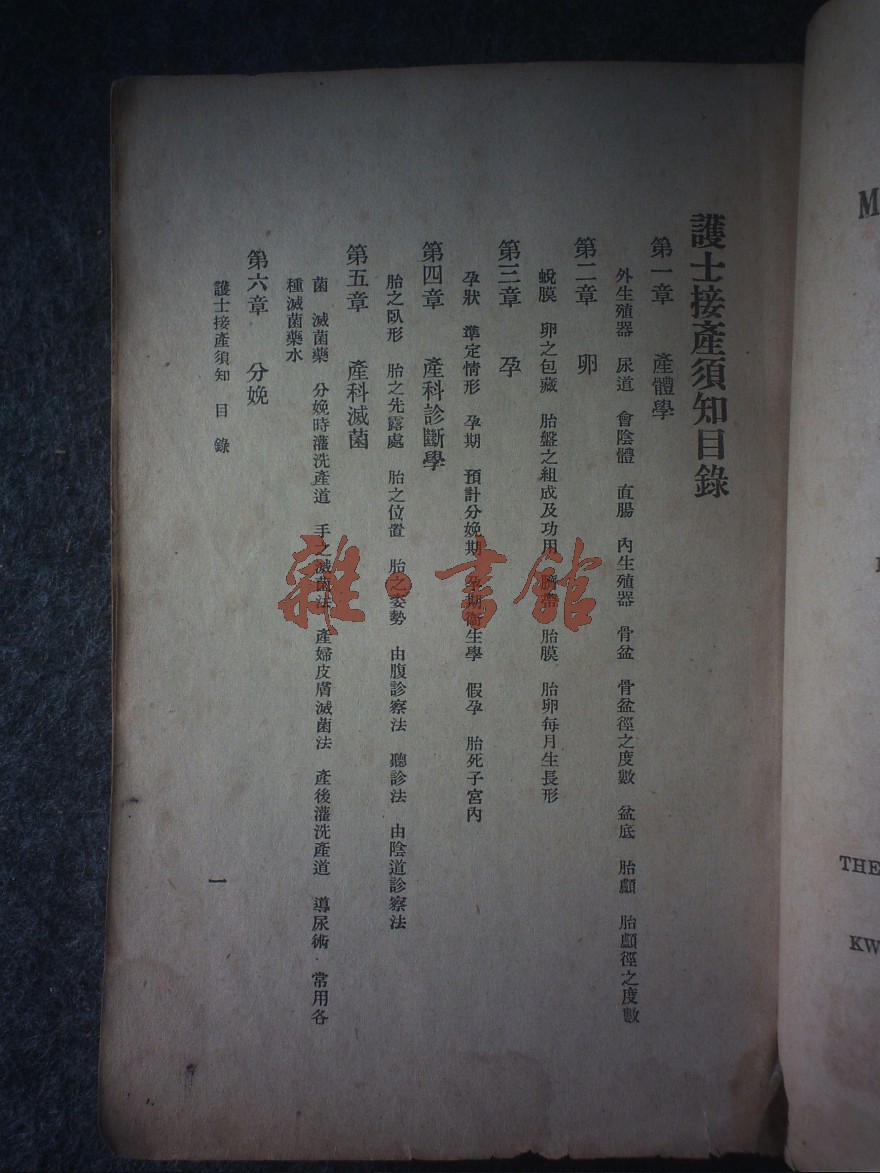 護士接產須知目錄
第一章 產體學
外生殖器 尿道 會陰體 直腸 內生殖器 骨盆 骨盆徑之度數 盆底 胎顱 胎顱徑之度數
第二章 卵
蛻膜 卵之包藏 胎盤之組成及功用 臍帶 胎膜 胎卵每月生長形
第三章 孕
孕狀 準定情形 孕期 預計分娩期 孕期衞生學 假孕 胎死子宮內
第四章 產科診斷學
胎之臥形 胎之先露處 胎之位置 胎之姿勢 由腹診察法 聽診法 由陰道診察法
第五章 產科滅菌
菌 滅菌藥 分娩時灌洗產道 手之滅菌法 產婦皮膚滅菌法 產後灌洗產道 導尿術 常用各
種滅菌藥水
第六章 分娩
護士接產須知 目錄
一
雜·書館
M
THE
KW